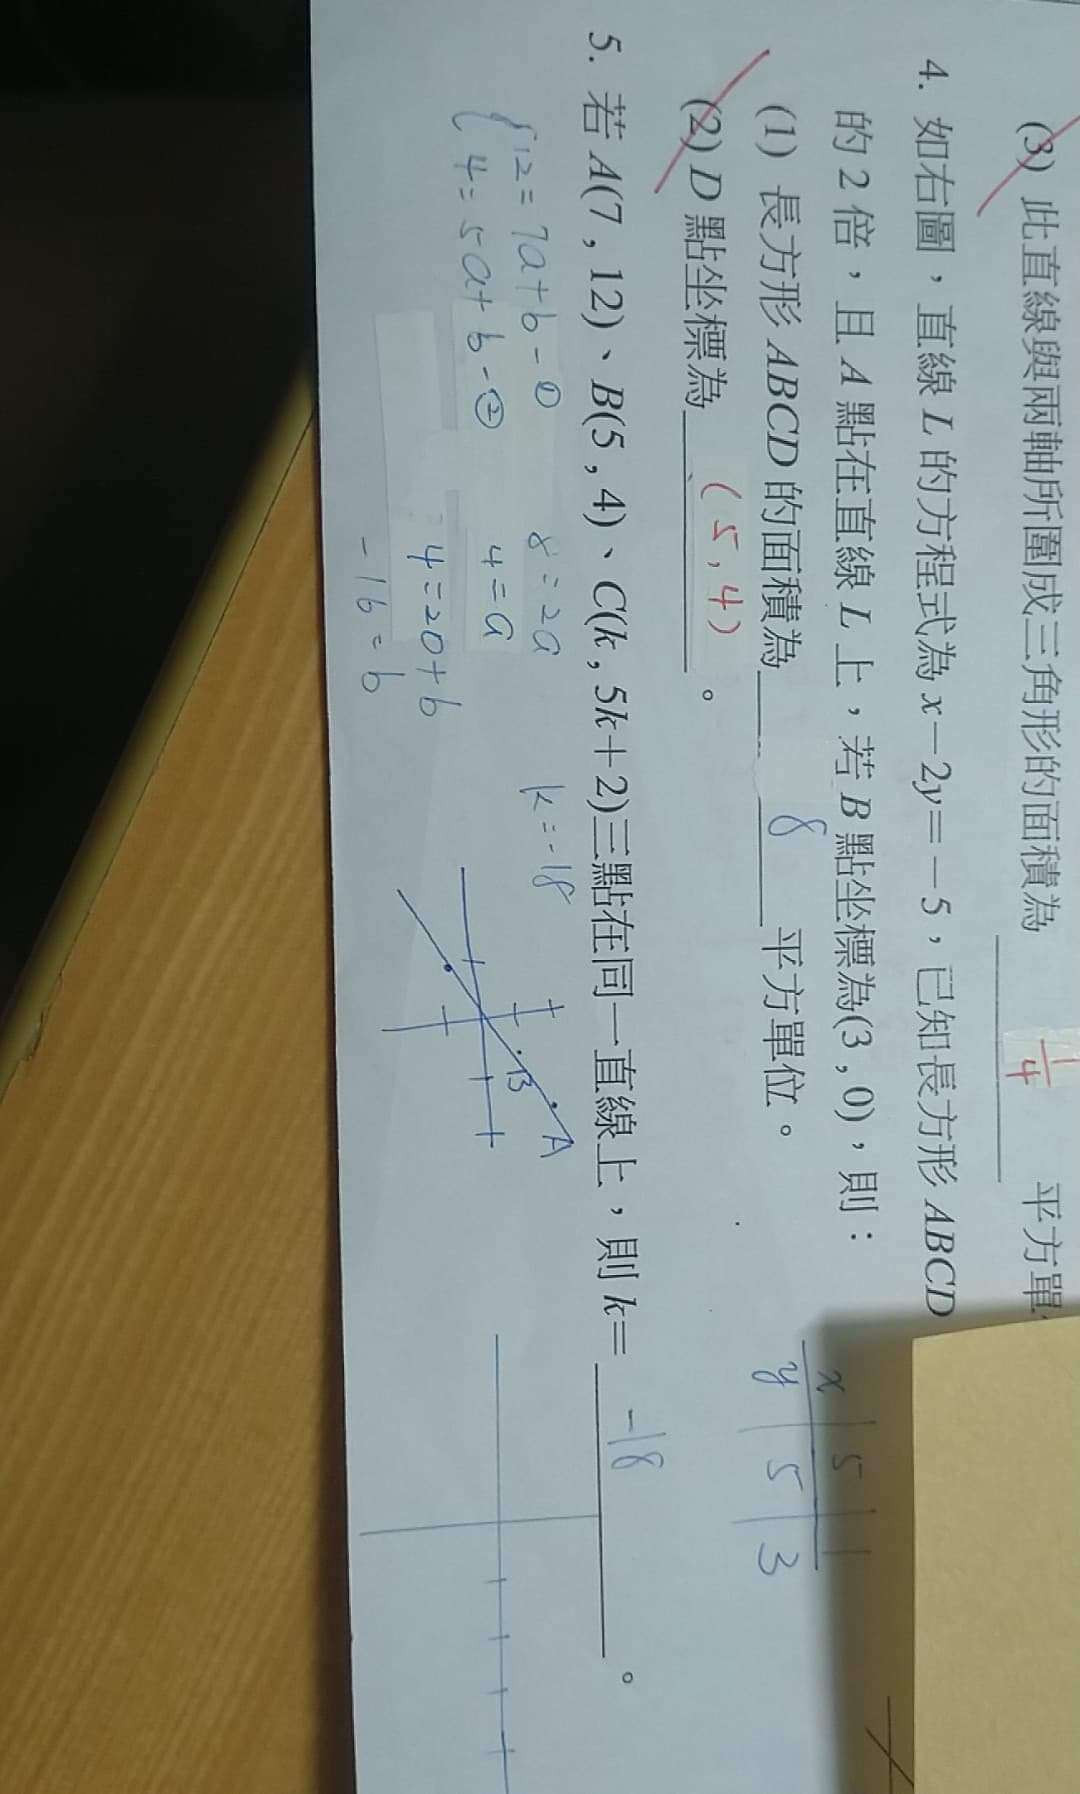 (3) 此直線與兩軸所圍成三角形的面積為 1/4 平方單
4. 如右圖，直線 L 的方程式為 x－2y＝－5，已知長方形 ABCD
的 2 倍，且 A 點在直線 L 上，若 B 點坐標為(3 , 0)，則：
(1) 長方形 ABCD 的面積為 8 平方單位。
(2) D 點坐標為 (5, 4) 。
x 5 1
y 5 3
5. 若 A(7 , 12)、B(5 , 4)、C(k , 5k＋2)三點在同一直線上，則 k＝ -18 。
{12 = 7a+b -①
4 = 5a+b -②
8 = 2a
4 = a
4 = 20+b
-16 = b
k = -18
A
B